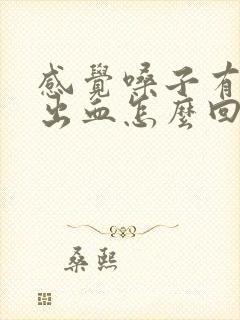 感覺嗓子有
出血怎麼回
桑熙